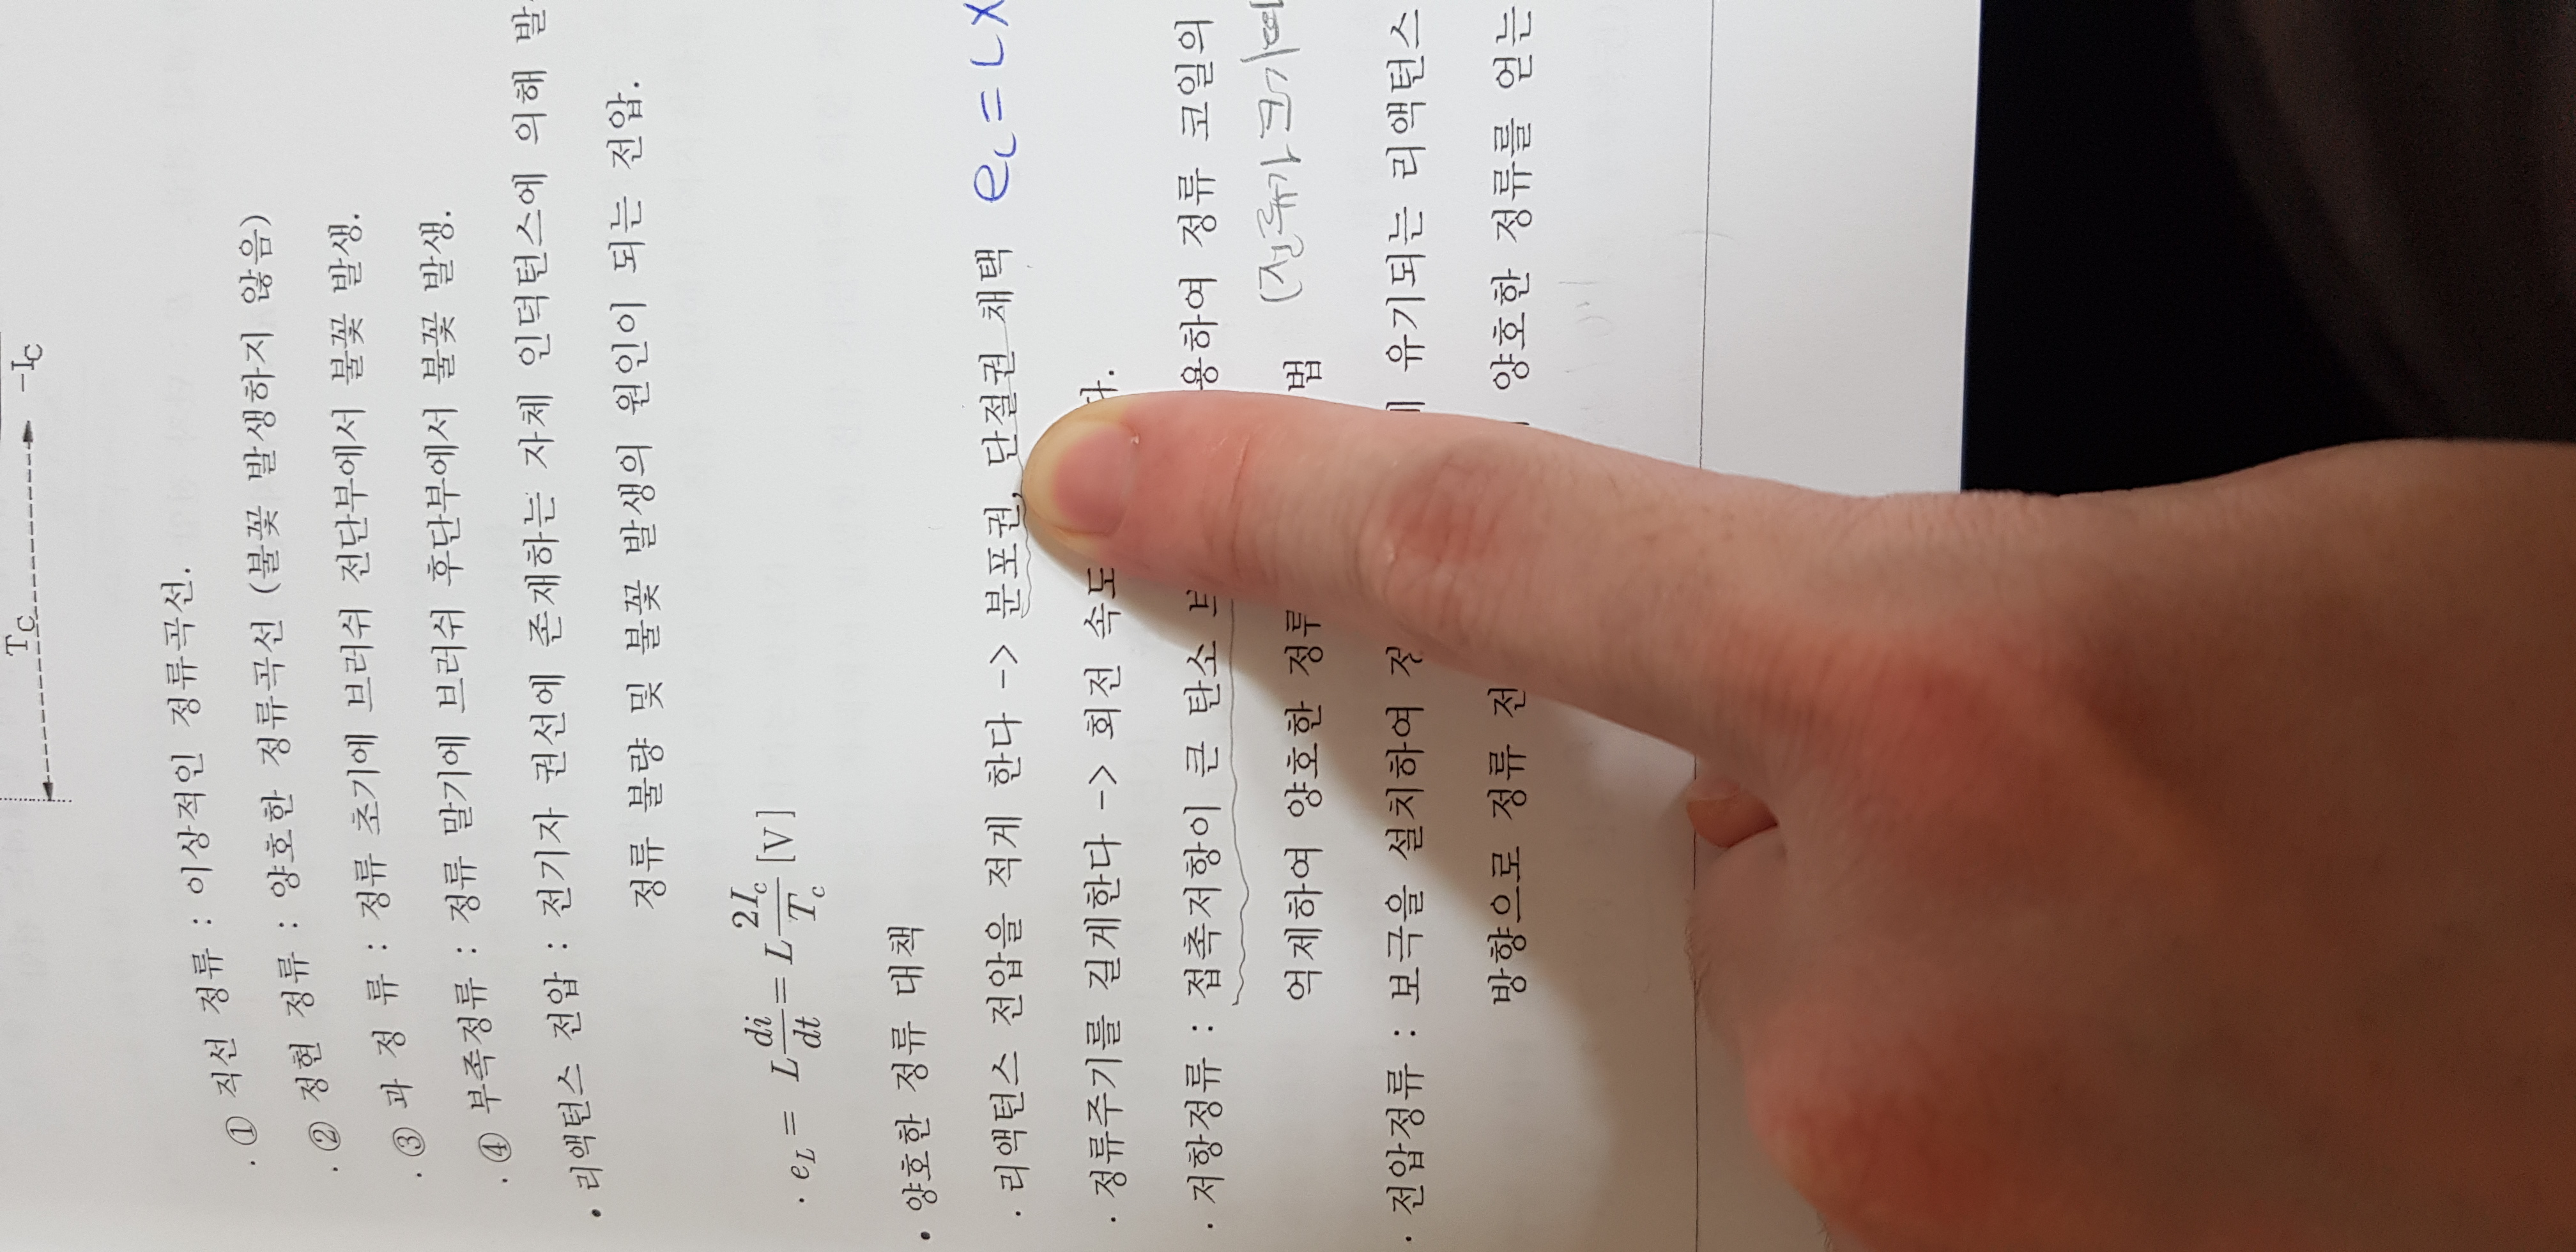 T_C
-I_C
· ① 직선 정류 : 이상적인 정류곡선.
· ② 정현 정류 : 양호한 정류곡선 (불꽃 발생하지 않음)
· ③ 과 정 류 : 정류 초기에 브러쉬 전단부에서 불꽃 발생.
· ④ 부족정류 : 정류 말기에 브러쉬 후단부에서 불꽃 발생.
• 리액턴스 전압 : 전기자 권선에 존재하는 자체 인덕턴스에 의해
정류 불량 및 불꽃 발생의 원인이 되는 전압.
· e_L = L di/dt = L 2I_c/T_c [V]
• 양호한 정류 대책
· 리액턴스 전압을 적게 한다 -> 분포권, 단절권 채택 e_L = L×
· 정류주기를 길게한다 -> 회전 속도
· 저항정류 : 접촉저항이 큰 탄소 용하여 정류 코일의
억제하여 양호한 정류 법 (전류가 크기때
· 전압정류 : 보극을 설치하여 유기되는 리액턴스
방향으로 정류 전 양호한 정류를 얻는